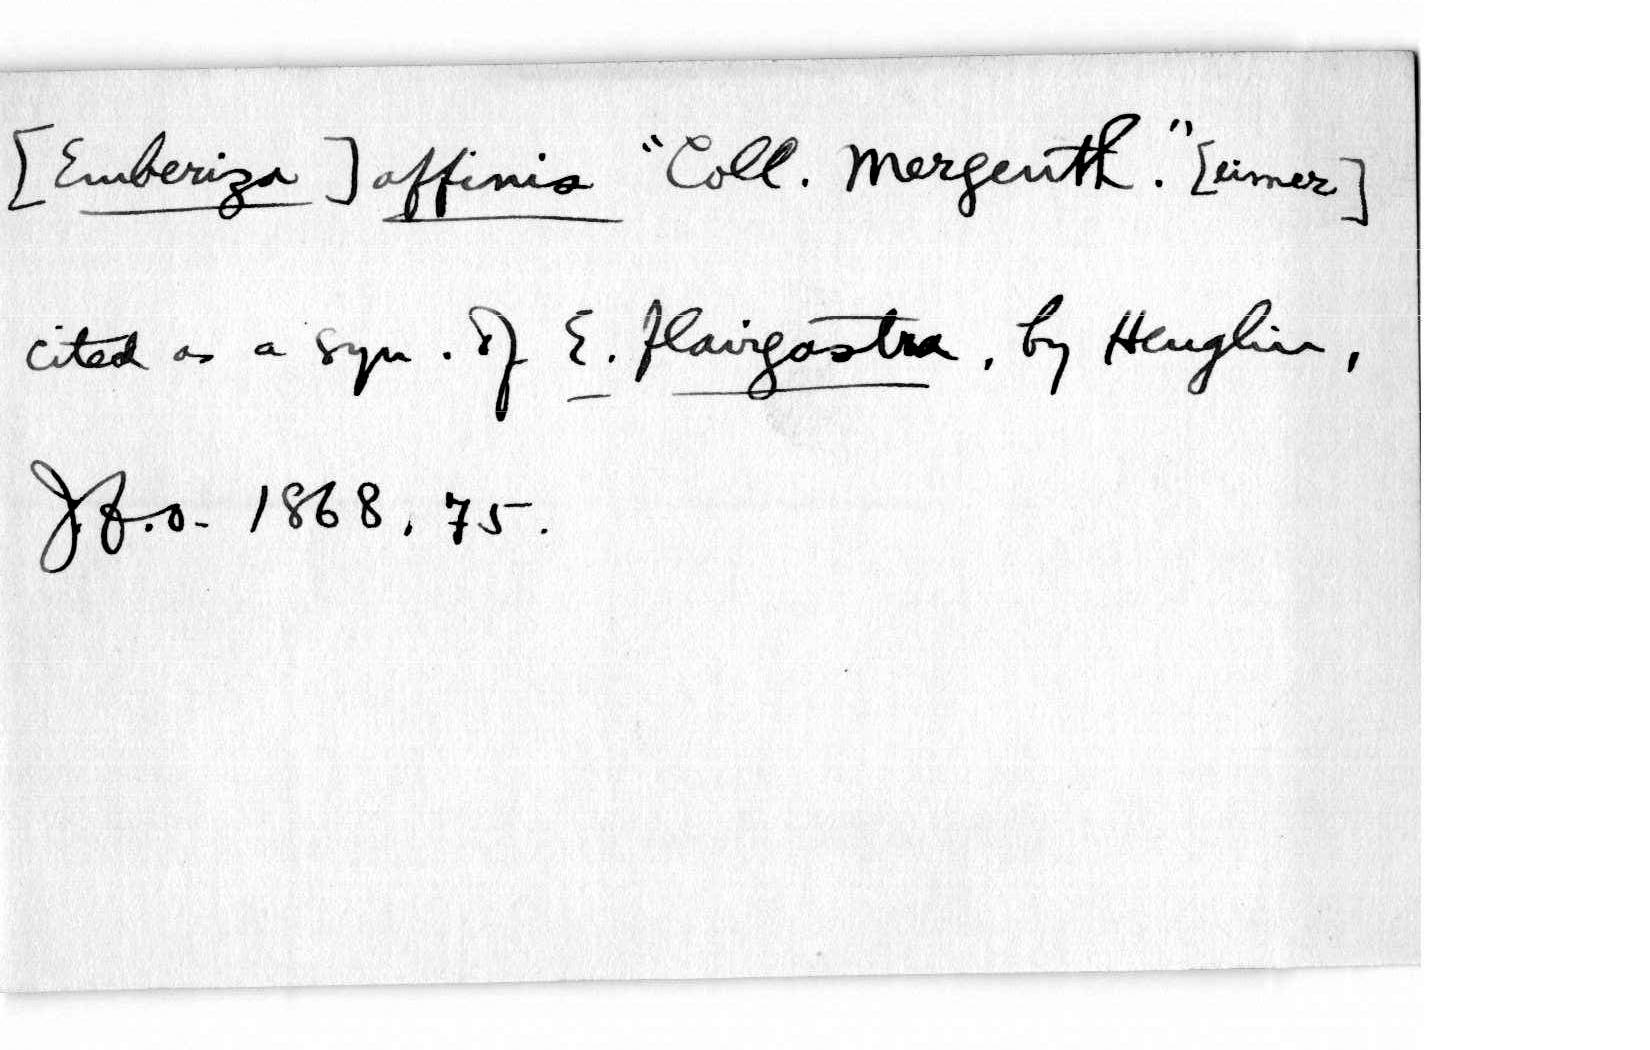 [Emberiza] affinis "Coll. Mergenth." [eimer]
cited as a syn. of E. flavigastra, by Heuglin,
J.f.O. 1868, 75.